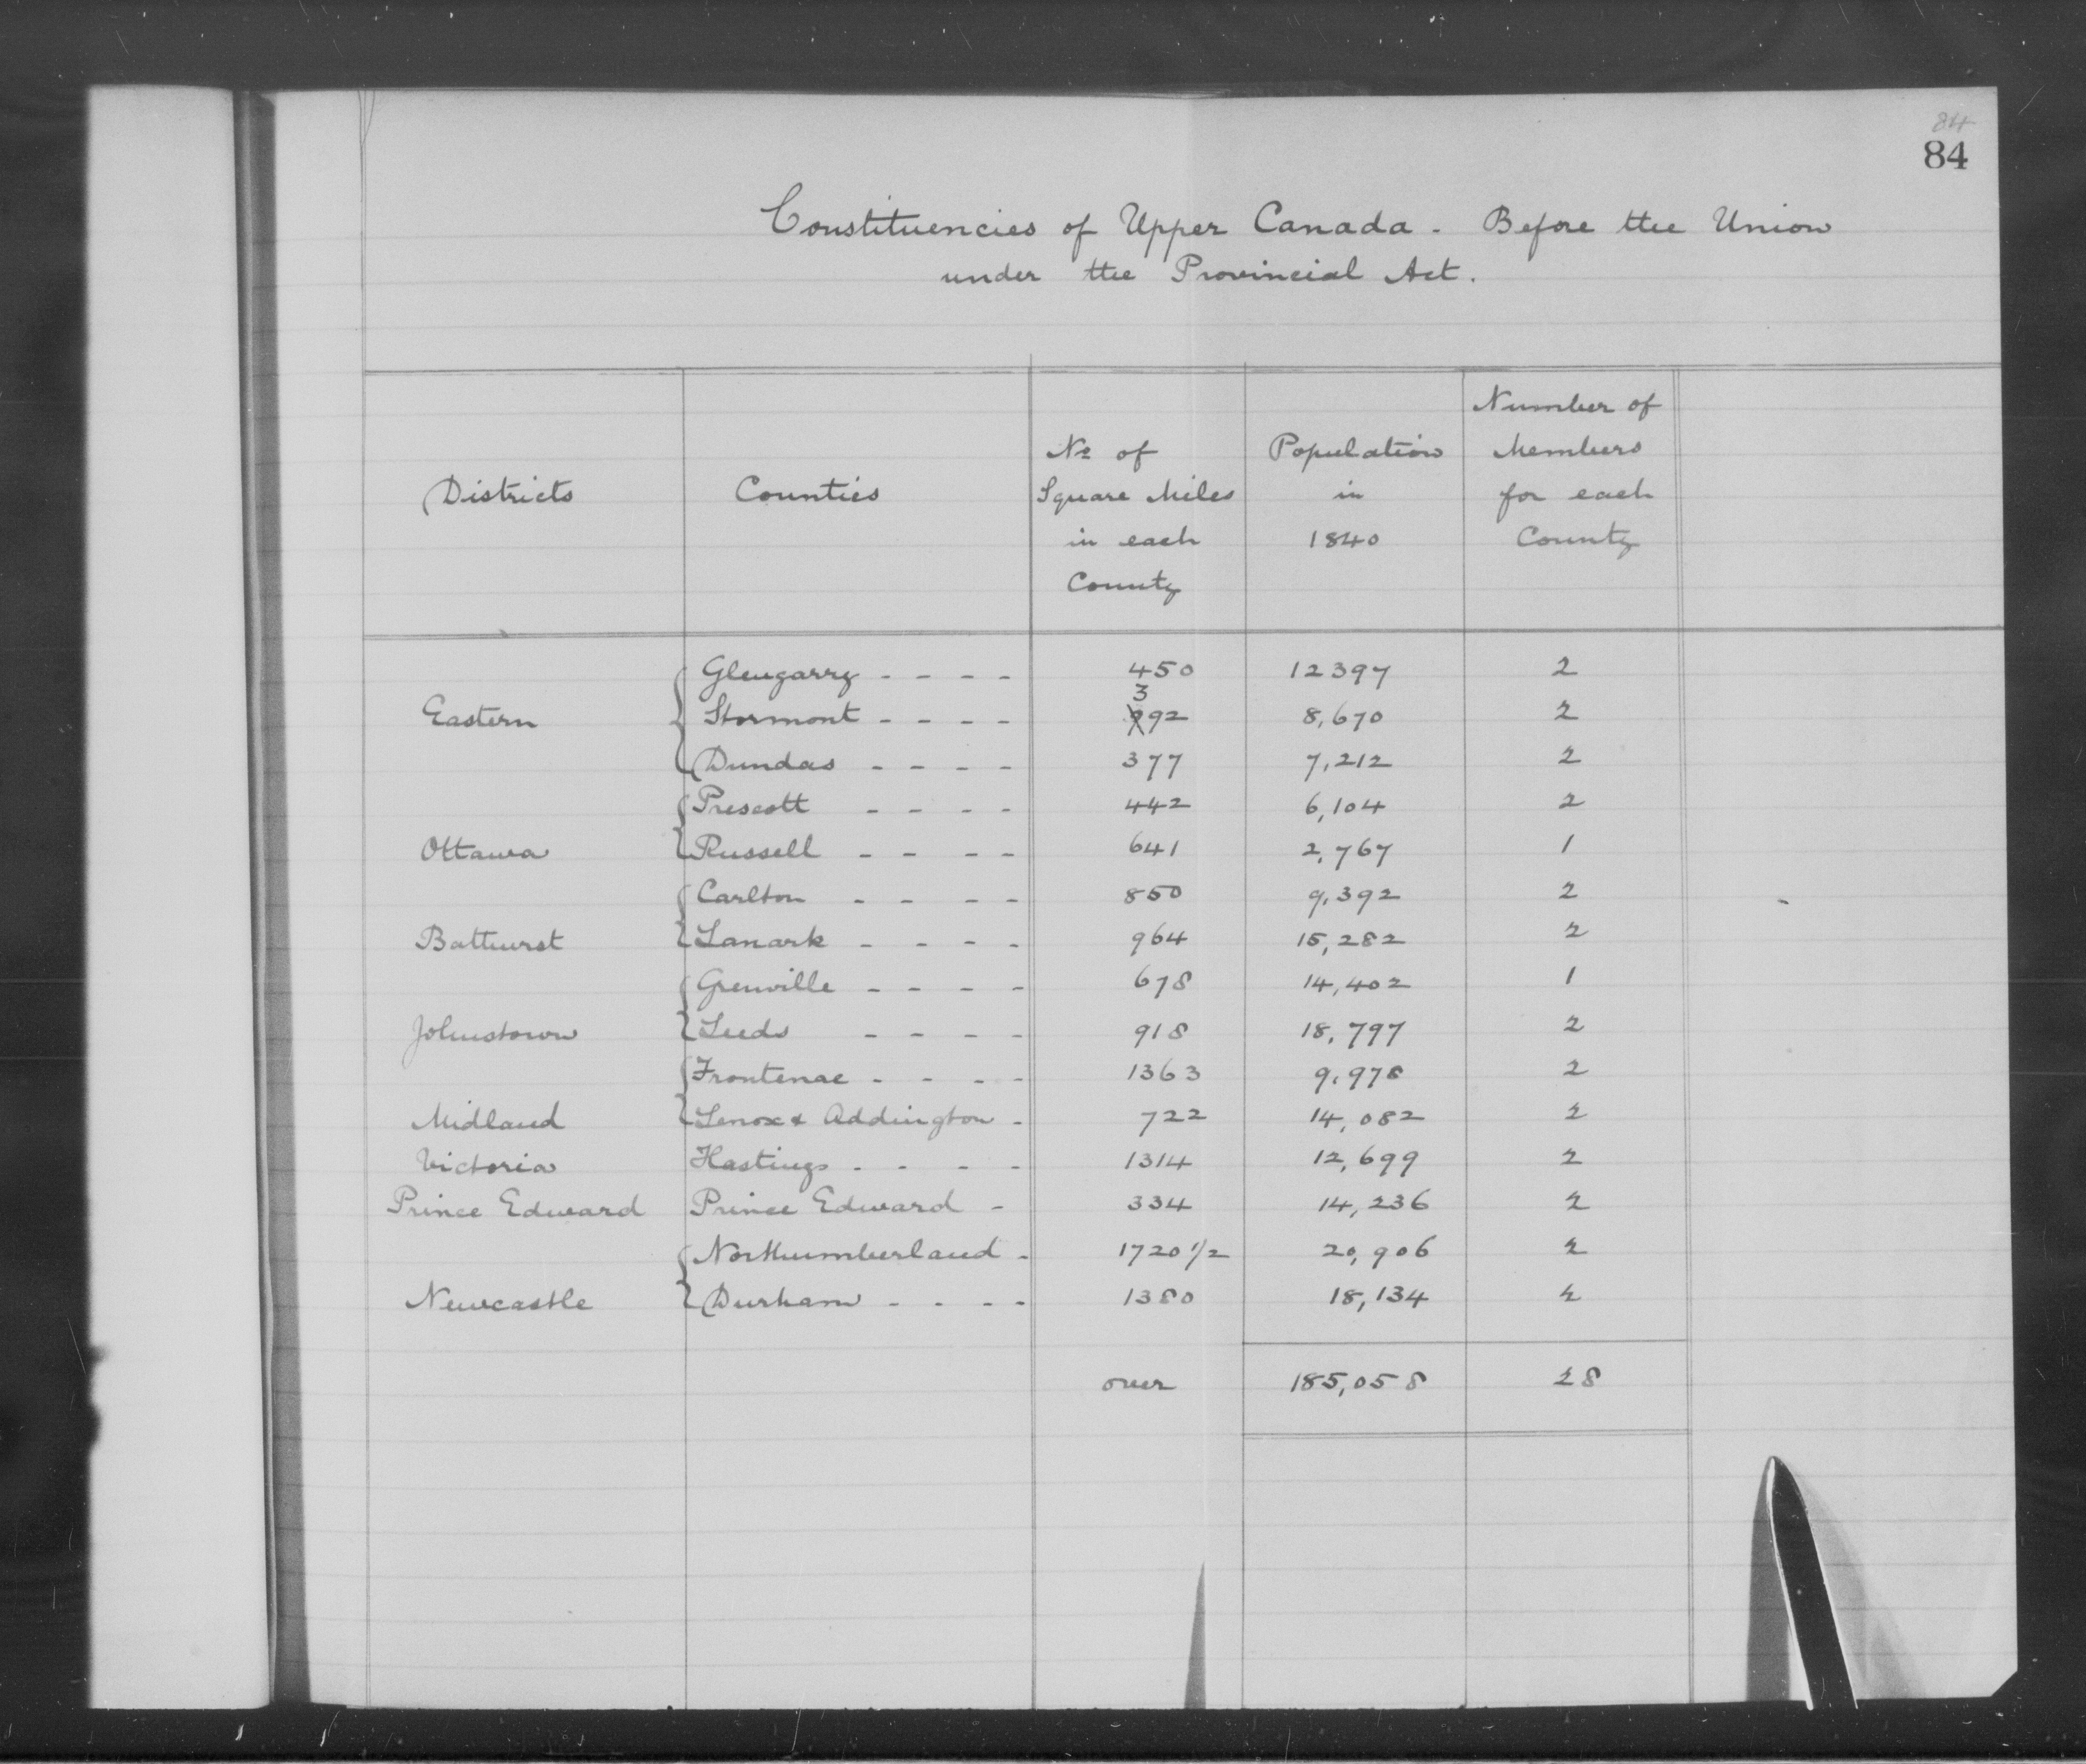 84
84
Constituencies of Upper Canada - Before the Union
under the Provincial Act.
Districts Counties No of Square Miles in each County Population in 1840 Number of Members for each County
Glengarry - - - - 450 12397 2
Eastern Stormont - - - - 392 8,670 2
Dundas - - - - 377 7,212 2
Prescott - - - - 442 6,104 2
Ottawa Russell - - - - 641 2,767 1
Carlton - - - - 850 9,392 2
Bathurst Lanark - - - - 964 15,282 2
Grenville - - - - 678 14,402 1
Johnstown Leeds - - - - 918 18,797 2
Frontenac - - - - 1363 9,978 2
Midland Lenox & Addington - 722 14,082 2
Victoria Hastings - - - - 1314 12,699 2
Prince Edward Prince Edward - 334 14,236 2
Northumberland - 1720 1/2 20,906 2
Newcastle Durham - - - - 1380 18,134 2
over 185,058 28